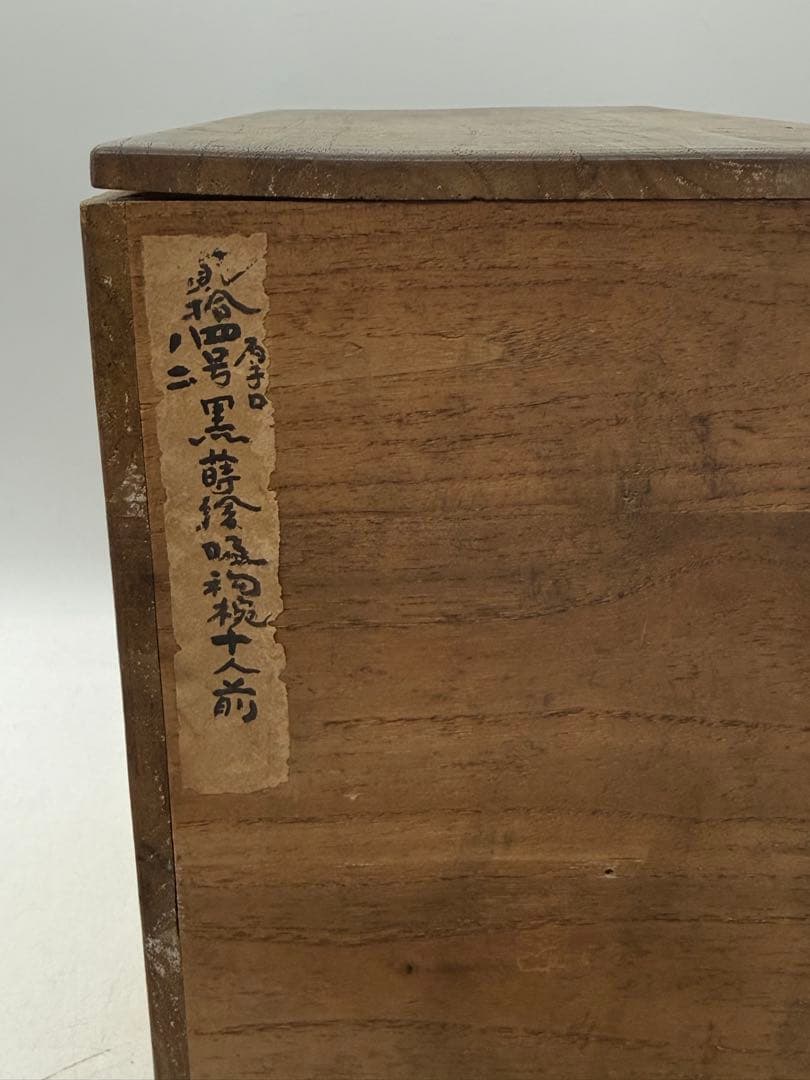 貳拾四号 黒蒔絵吸物椀十人前
厚手口
八二